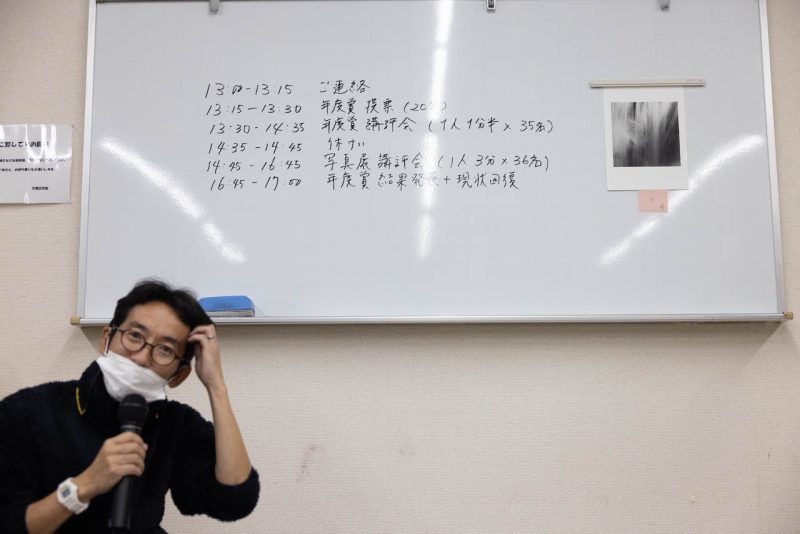 13:00-13:15 ご連絡
13:15-13:30 年度賞 投票
13:30-14:35 年度賞 講評会 (1人1分半×35名)
14:35-14:45 休けい
14:45-16:45 写真展 講評会 (1人3分×36名)
16:45-17:00 年度賞 結果発表+現状回復
4